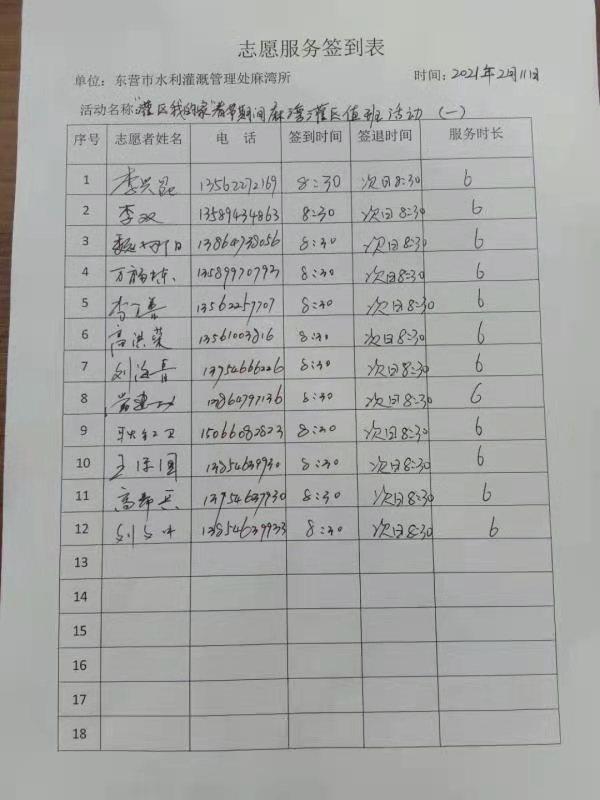 志愿服务签到表
单位：东营市水利灌溉管理处麻湾所 时间：2021年2月11日
活动名称“灌区我的家”春节期间麻湾灌区值班活动（一）
序号 志愿者姓名 电 话 签到时间 签退时间 服务时长
1 13562272169 8:30 次日8:30 6
2 李双 13589434863 8:30 次日8:30 6
3 13864738056 8:30 次日8:30 6
4 13589970793 8:30 次日8:30 6
5 13562257707 8:30 次日8:30 6
6 高洪荣 13561003816 8:30 次日8:30 6
7 刘海青 13954666226 8:30 次日8:30 6
8 13864797136 8:30 次日8:30 6
9 耿红卫 15066082823 8:30 次日8:30 6
10 王保国 13854639930 8:30 次日8:30 6
11 13954637930 8:30 次日8:30 6
12 13854639933 8:30 次日8:30 6
13
14
15
16
17
18